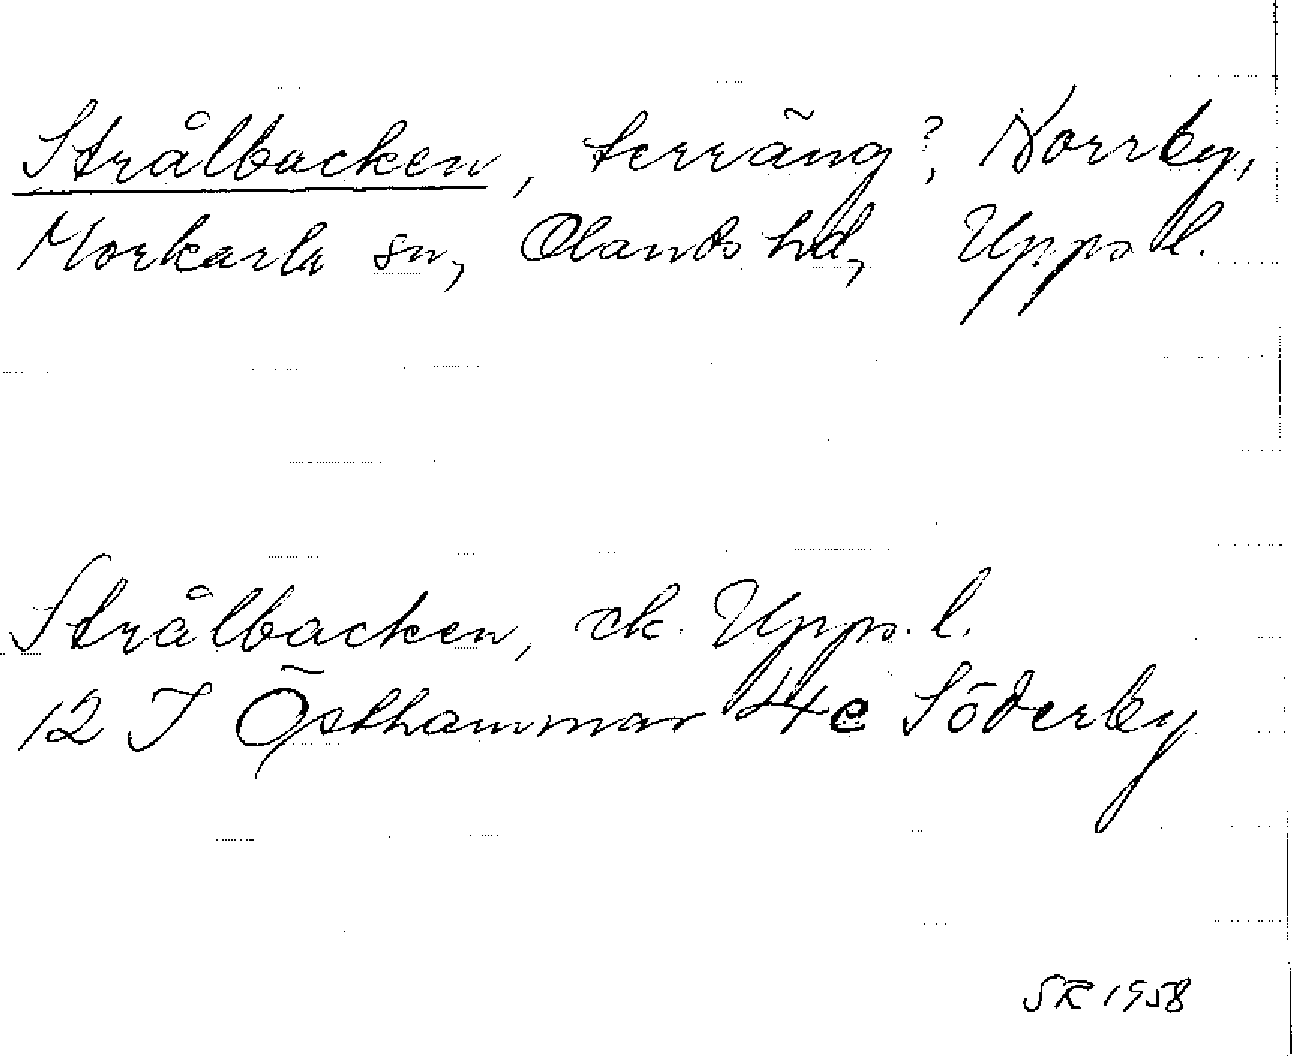 Strålbacken, terräng?, Norrby,
Morkarla sn, Olands hd, Upps l.
Strålbacken, ek. Upps. l.
12 I Östhammar 4e Söderby
SR 1958